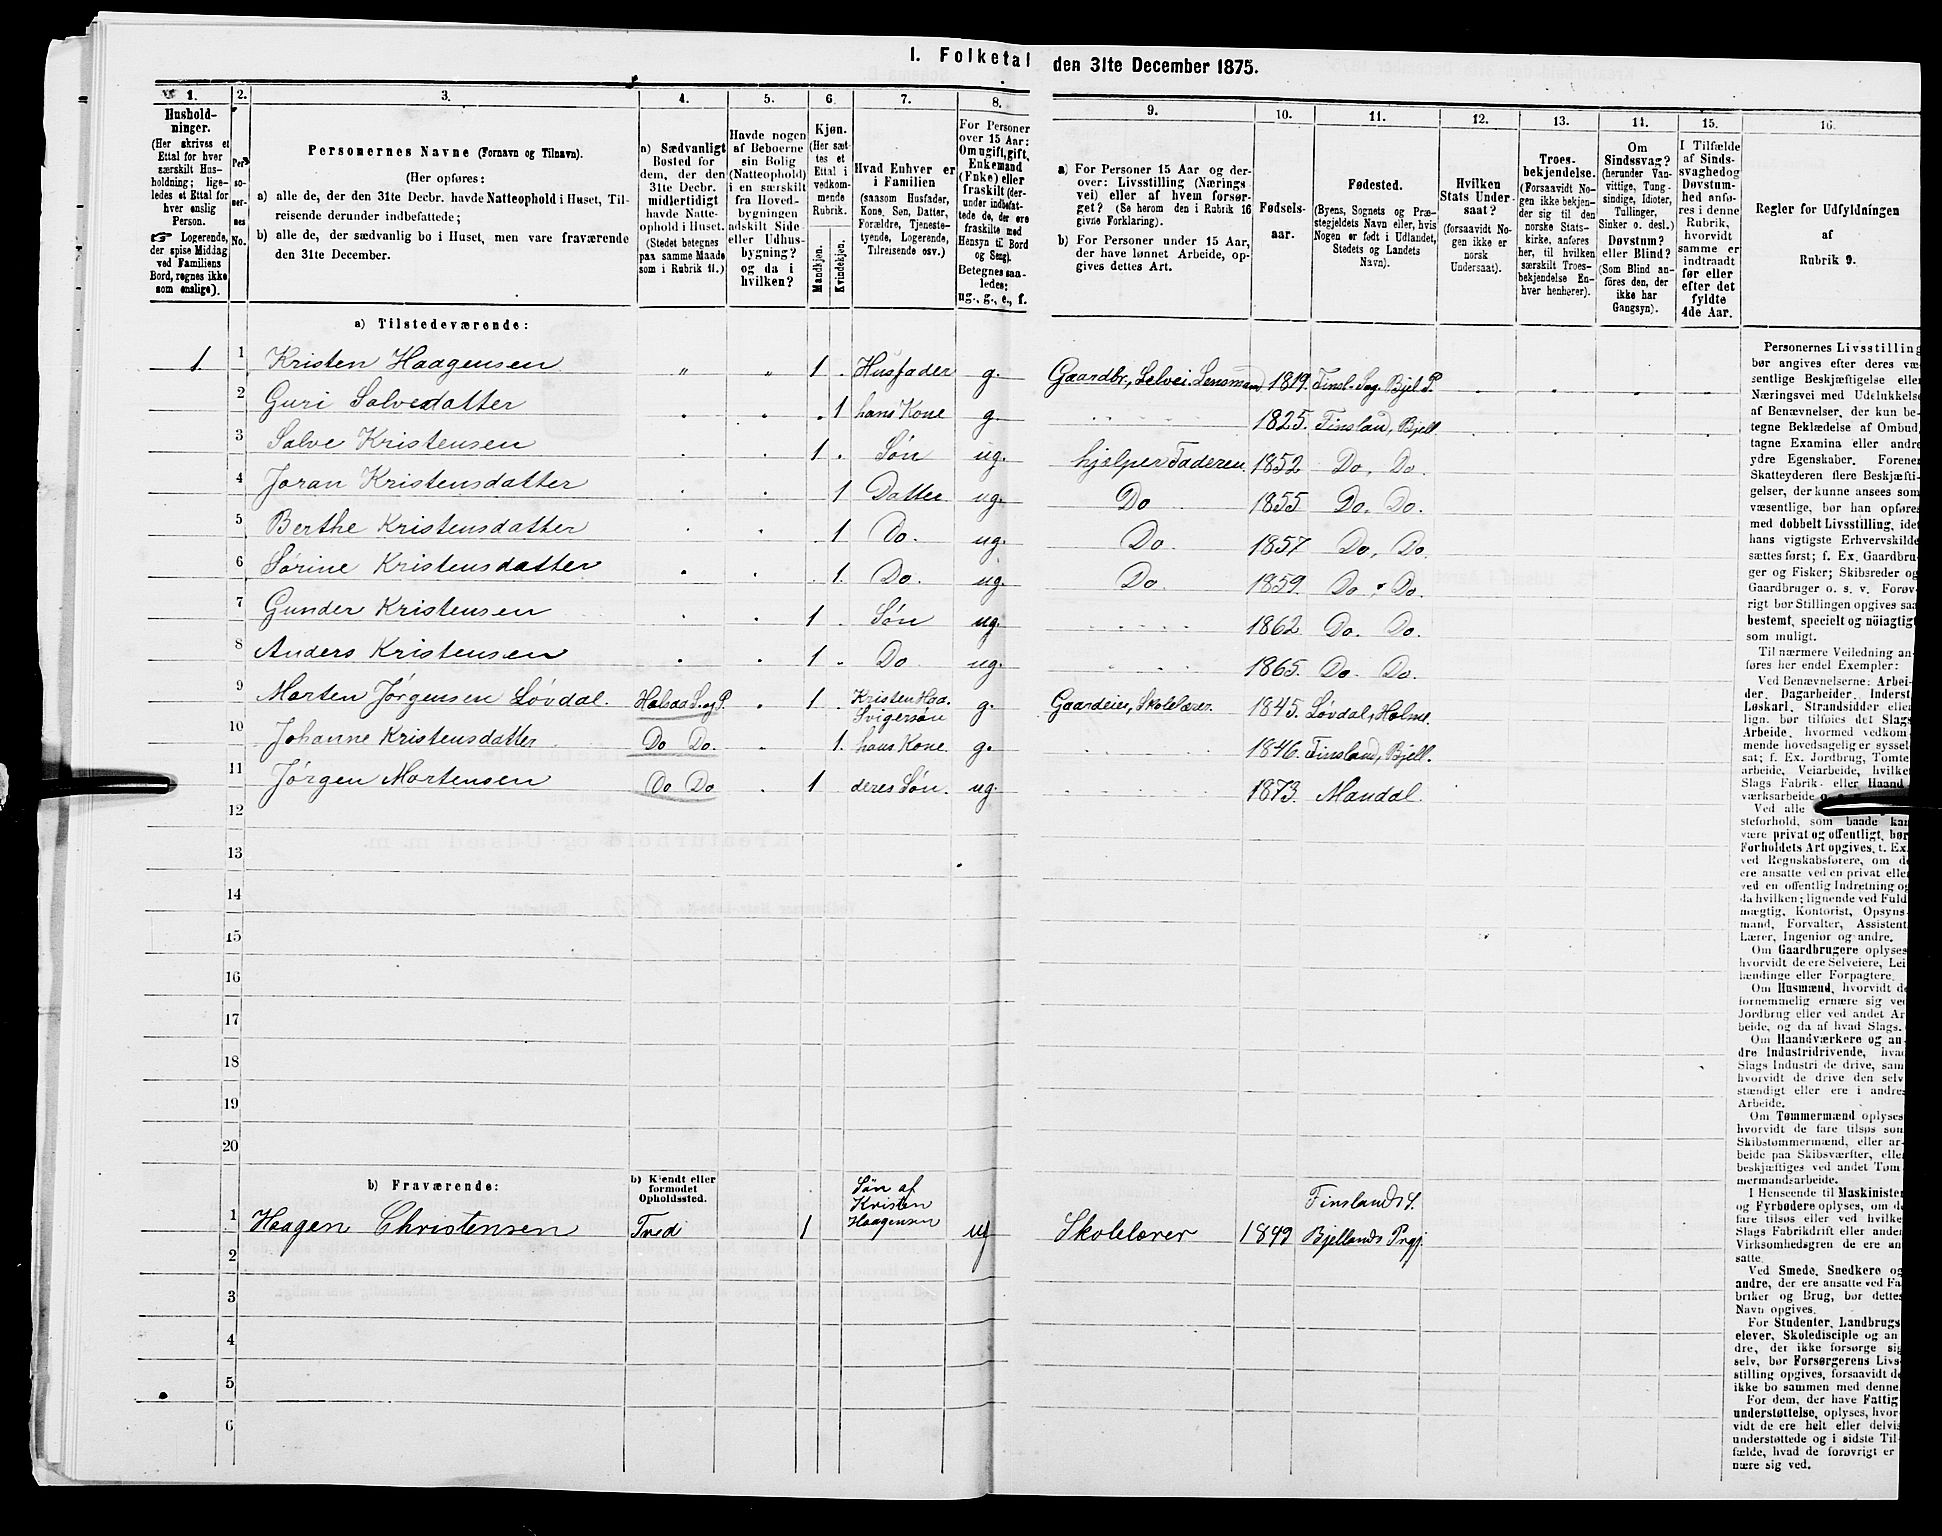 I. Folketal den 31te December 1875.
1. 2. 3. 4. 5. 6. 7. 8. 9. 10. 11. 12. 13. 14. 15. 16.
Hushold-
ninger.
(Her skrives et
Ettal for hver
særskilt Hus-
holdning; lige-
ledes et Ettal for
hver enslig
Person.
☞ Logerende,
der spise Middag
ved Familiens
Bord, regnes ikke
som enslige).
Per-
so-
ner-
nes
No.
Personernes Navne (Fornavn og Tilnavn).
(Her opføres:
a) alle de, der den 31te Decbr. havde Natteophold i Huset, Til-
reisende derunder indbefattede;
b) alle de, der sædvanlig bo i Huset, men vare fraværende
den 31te December.
a) Sædvanligt
Bosted for
dem, der den
31te Decbr.
midlertidigt
havde Natte-
ophold i Huset.
(Stedet betegnes
paa samme Maade
som i Rubrik 11.)
Havde nogen
af Beboerne
sin Bolig
(Natteophold)
i en særskilt
fra Hoved-
bygningen
adskilt Side-
eller Udhus-
bygning?
og da i
hvilken?
Kjøn.
(Her sæt-
tes et
Ettal i
vedkom-
mende
Rubrik.
Mandkjøn.
Kvindekjøn.
Hvad Enhver er
i Familien
(saasom Husfader,
Kone, Søn, Datter,
Forældre, Tjeneste-
tyende, Logerende,
Tilreisende osv.)
For Personer
over 15 Aar:
Om ugift, gift,
Enkemand
(Enke) eller
fraskilt (der-
under indbefat-
tede de, der ere
fraskilte med
Hensyn til Bord
og Seng).
Betegnes saa-
ledes:
ug., g., e., f.
a) For Personer 15 Aar og der-
over: Livsstilling (Nærings-
vei) eller af hvem forsør-
get? (Se herom den i Rubrik 16
givne Forklaring).
b) For Personer under 15 Aar,
der have lønnet Arbeide, op-
gives dettes Art.
Fødsels-
aar.
Fødested.
(Byens, Sognets og Præ-
stegjeldets Navn eller, hvis
Nogen er født i Udlandet,
Stedets og Landets
Navn).
Hvilken
Stats Under-
saat?
(forsaavidt No-
gen ikke er
norsk
Undersaat).
Troes-
bekjendelse.
(Forsaavidt No-
gen ikke bekjen-
der sig til den
norske Stats-
kirke, anføres
her, til hvilken
særskilt Troes-
bekjendelse En-
hver henhører).
Om
Sindssvag?
(herunder Van-
vittige, Tung-
sindige, Idioter,
Tullinger,
Sinker o. desl.)
Døvstum?
eller Blind?
(Som Blind an-
føres den, der
ikke har
Gangsyn).
I Tilfælde
af Sinds-
svaghed og
Døvstum-
hed anfø-
res i denne
Rubrik,
hvorvidt
samme er
indtraadt
før eller
efter det
fyldte
4de Aar.
Regler for Udfyldningen
af
Rubrik 9.
a) Tilstedeværende:
1. 1 Kristen Haagensen " " 1 . Husfader g. Gaardbr, Selvei. Lensmand 1819. Finsl. Sog. Bjel P.
2 Guri Salvesdatter . 1 hans Kone g. 1825. Finsland, Bjell.
3 Salve Kristensen 1 . Søn ug. hjælper Faderen 1852 Do. Do.
4 Joran Kristensdatter 1 Datter ug. Do 1855 Do. Do.
5 Berthe Kristensdatter . 1 Do. ug. Do. 1857 Do. Do.
6 Sørine Kristensdatter . 1. Do. ug. Do 1859. Do. Do.
7 Gunder Kristensen 1 . Søn ug. 1862. Do. Do.
8 Anders Kristensen 1 . Do. ug. 1865. Do. Do.
9 Morten Jørgensen Løvdal. Halsaa S. og P. 1 . Kristen Haa. Svigersøn g. Gaardeier, Skolelærer 1845. Løvdal, Holme.
10 Johanne Kristensdatter. Do Do. 1. hans Kone g. 1846. Finsland, Bjell.
11 Jørgen Mortensen Do Do 1 deres Søn. ug. 1873. Mandal.
12
13
14
15
16
17
18
19
20
b) Fraværende:
b) Kjendt eller
formodet
Opholdssted.
1 Haagen Christensen 1 Søn af Kristen Haagensen ug Skolelærer 1849 Finslands S. Bjellands Prgj.
2
3
4
5
6
Personernes Livsstilling
bør angives efter deres væ-
sentlige Beskjæftigelse eller
Næringsvei med Udelukkelse
af Benævnelser, der kun be-
tegne Beklædelse af Ombud,
tagne Examina eller andre
ydre Egenskaber. Forener
Skatteyderen flere Beskjæfti-
gelser, der kunne ansees som
væsentlige, bør han opføres
med dobbelt Livsstilling, idet
hans vigtigste Erhvervskilde
sættes først; f. Ex. Gaardbru-
ger og Fisker; Skibsreder og
Gaardbruger o. s. v. Forøv-
rigt bør Stillingen opgives saa
bestemt, specielt og nøiagtigt
som muligt.
Til nærmere Veiledning an-
føres her endel Exempler:
Ved Benævnelserne: Arbei-
der, Dagarbeider, Inderst,
Løskarl, Strandsidder eller
lign. bør tilføies det Slags
Arbeide, hvormed vedkom-
mende hovedsagelig er syssel-
sat; f. Ex. Jordbrug, Tomte-
arbeide, Veiarbeide, hvilket
Slags Fabrik- eller Haand-
værksarbeide
Ved alle
steforhold, som baade kan
være privat og offentligt, bør
Forholdets Art opgives, t. Ex.
ved Regnskabsførere, om de
ere ansatte ved en privat eller
ved en offentlig Indretning og
da hvilken; lignende ved Fuld-
mægtig, Kontorist, Opsyns-
mand, Forvalter, Assistent,
Lærer, Ingeniør og andre.
Om Gaardbrugere oplyses,
hvorvidt de ere Selveiere, Lei-
lændinge eller Forpagtere.
Om Husmænd, hvorvidt de
fornemmelig ernære sig ved
Jordbrug eller ved andet Ar-
beide, og da af hvad Slags.
Om Haandværkere og an-
dre Industridrivende, hvad
Slags Industri de drive, samt
hvorvidt de drive den selv-
stændigt eller ere i andres
Arbeide.
Om Tømmermænd oplyses,
hvorvidt de fare tilsøs som
Skibstømmermænd, eller ar-
beide paa Skibsværfter, eller
beskjæftiges ved andet Tøm-
mermandsarbeide.
I Henseende til Maskinister
og Fyrbødere oplyses, om de
fare tilsøs eller ved hvilket
Slags Fabrikdrift eller anden
Virksomhedsgren de ere an-
satte.
Ved Smede, Snedkere og
andre, der ere ansatte ved Fa-
briker og Brug, bør dettes
Navn opgives.
For Studenter, Landbrugs-
elever, Skoledisciple og an-
dre, der ikke forsørge sig
selv, bør Forsørgerens Livs-
stilling opgives, forsaavidt de
ikke bo sammen med denne.
For dem, der have Fattig-
understøttelse, oplyses, hvor-
vidt de ere helt eller delvis
understøttede og i sidste Til-
fælde, hvad de forøvrigt er-
nære sig ved.